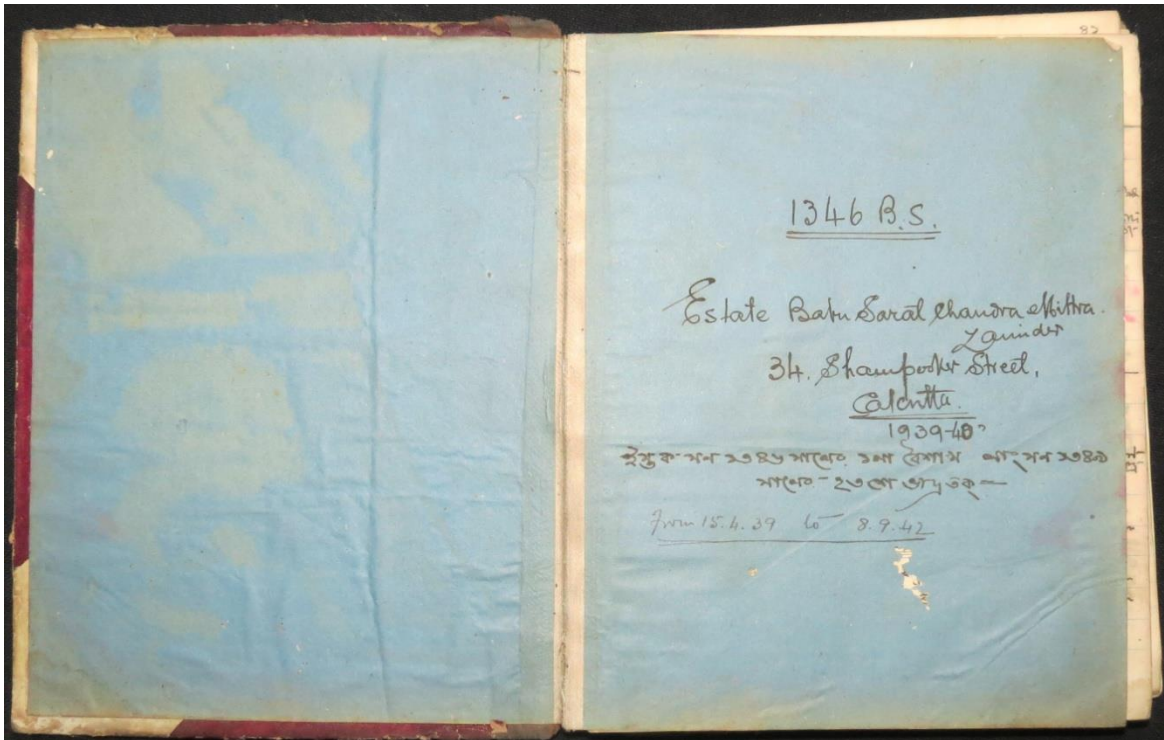 82
1346 B.S.
Estate Babu Sarat Chandra Mittra.
Zaminder
34. Shampooker Street,
Calcutta.
1939-40
ইস্তক সন ১৩৪৬ সালের ১লা বৈশাখ লাং সন ১৩৪৯
সালের - ২৩শে ভাদ্র তক্
From 15.4.39 to 8.9.42